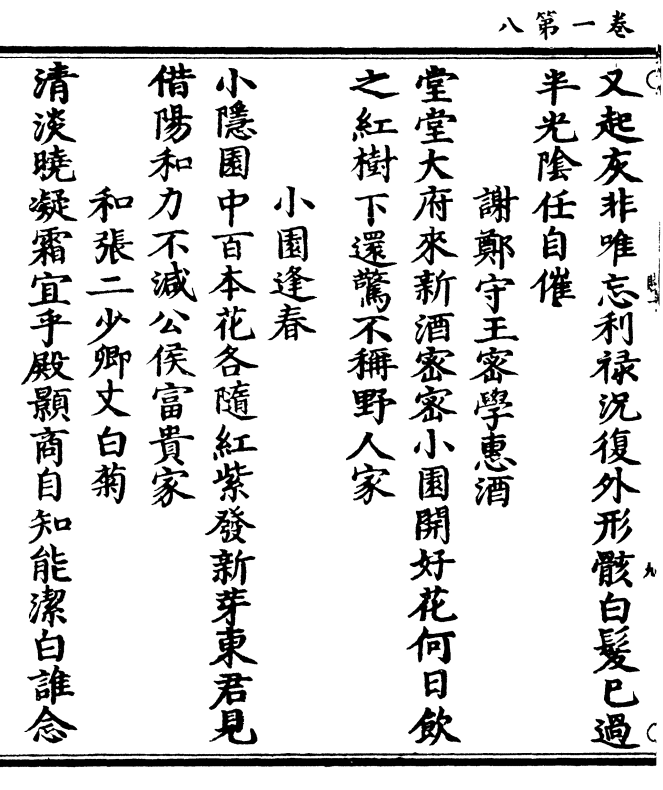 八第一卷
又起灰非唯忘利禄況復外形骸白髮已過
半光陰任自催
謝鄭守王密學惠酒
堂堂大府來新酒密密小園開好花何日飲
之紅樹下還驚不稱野人家
小園逢春
小隱園中百本花各隨紅紫發新芽東君見
借陽和力不減公侯富貴家
和張二少卿丈白菊
清淡曉凝霜宜乎殿顥商自知能潔白誰念
九